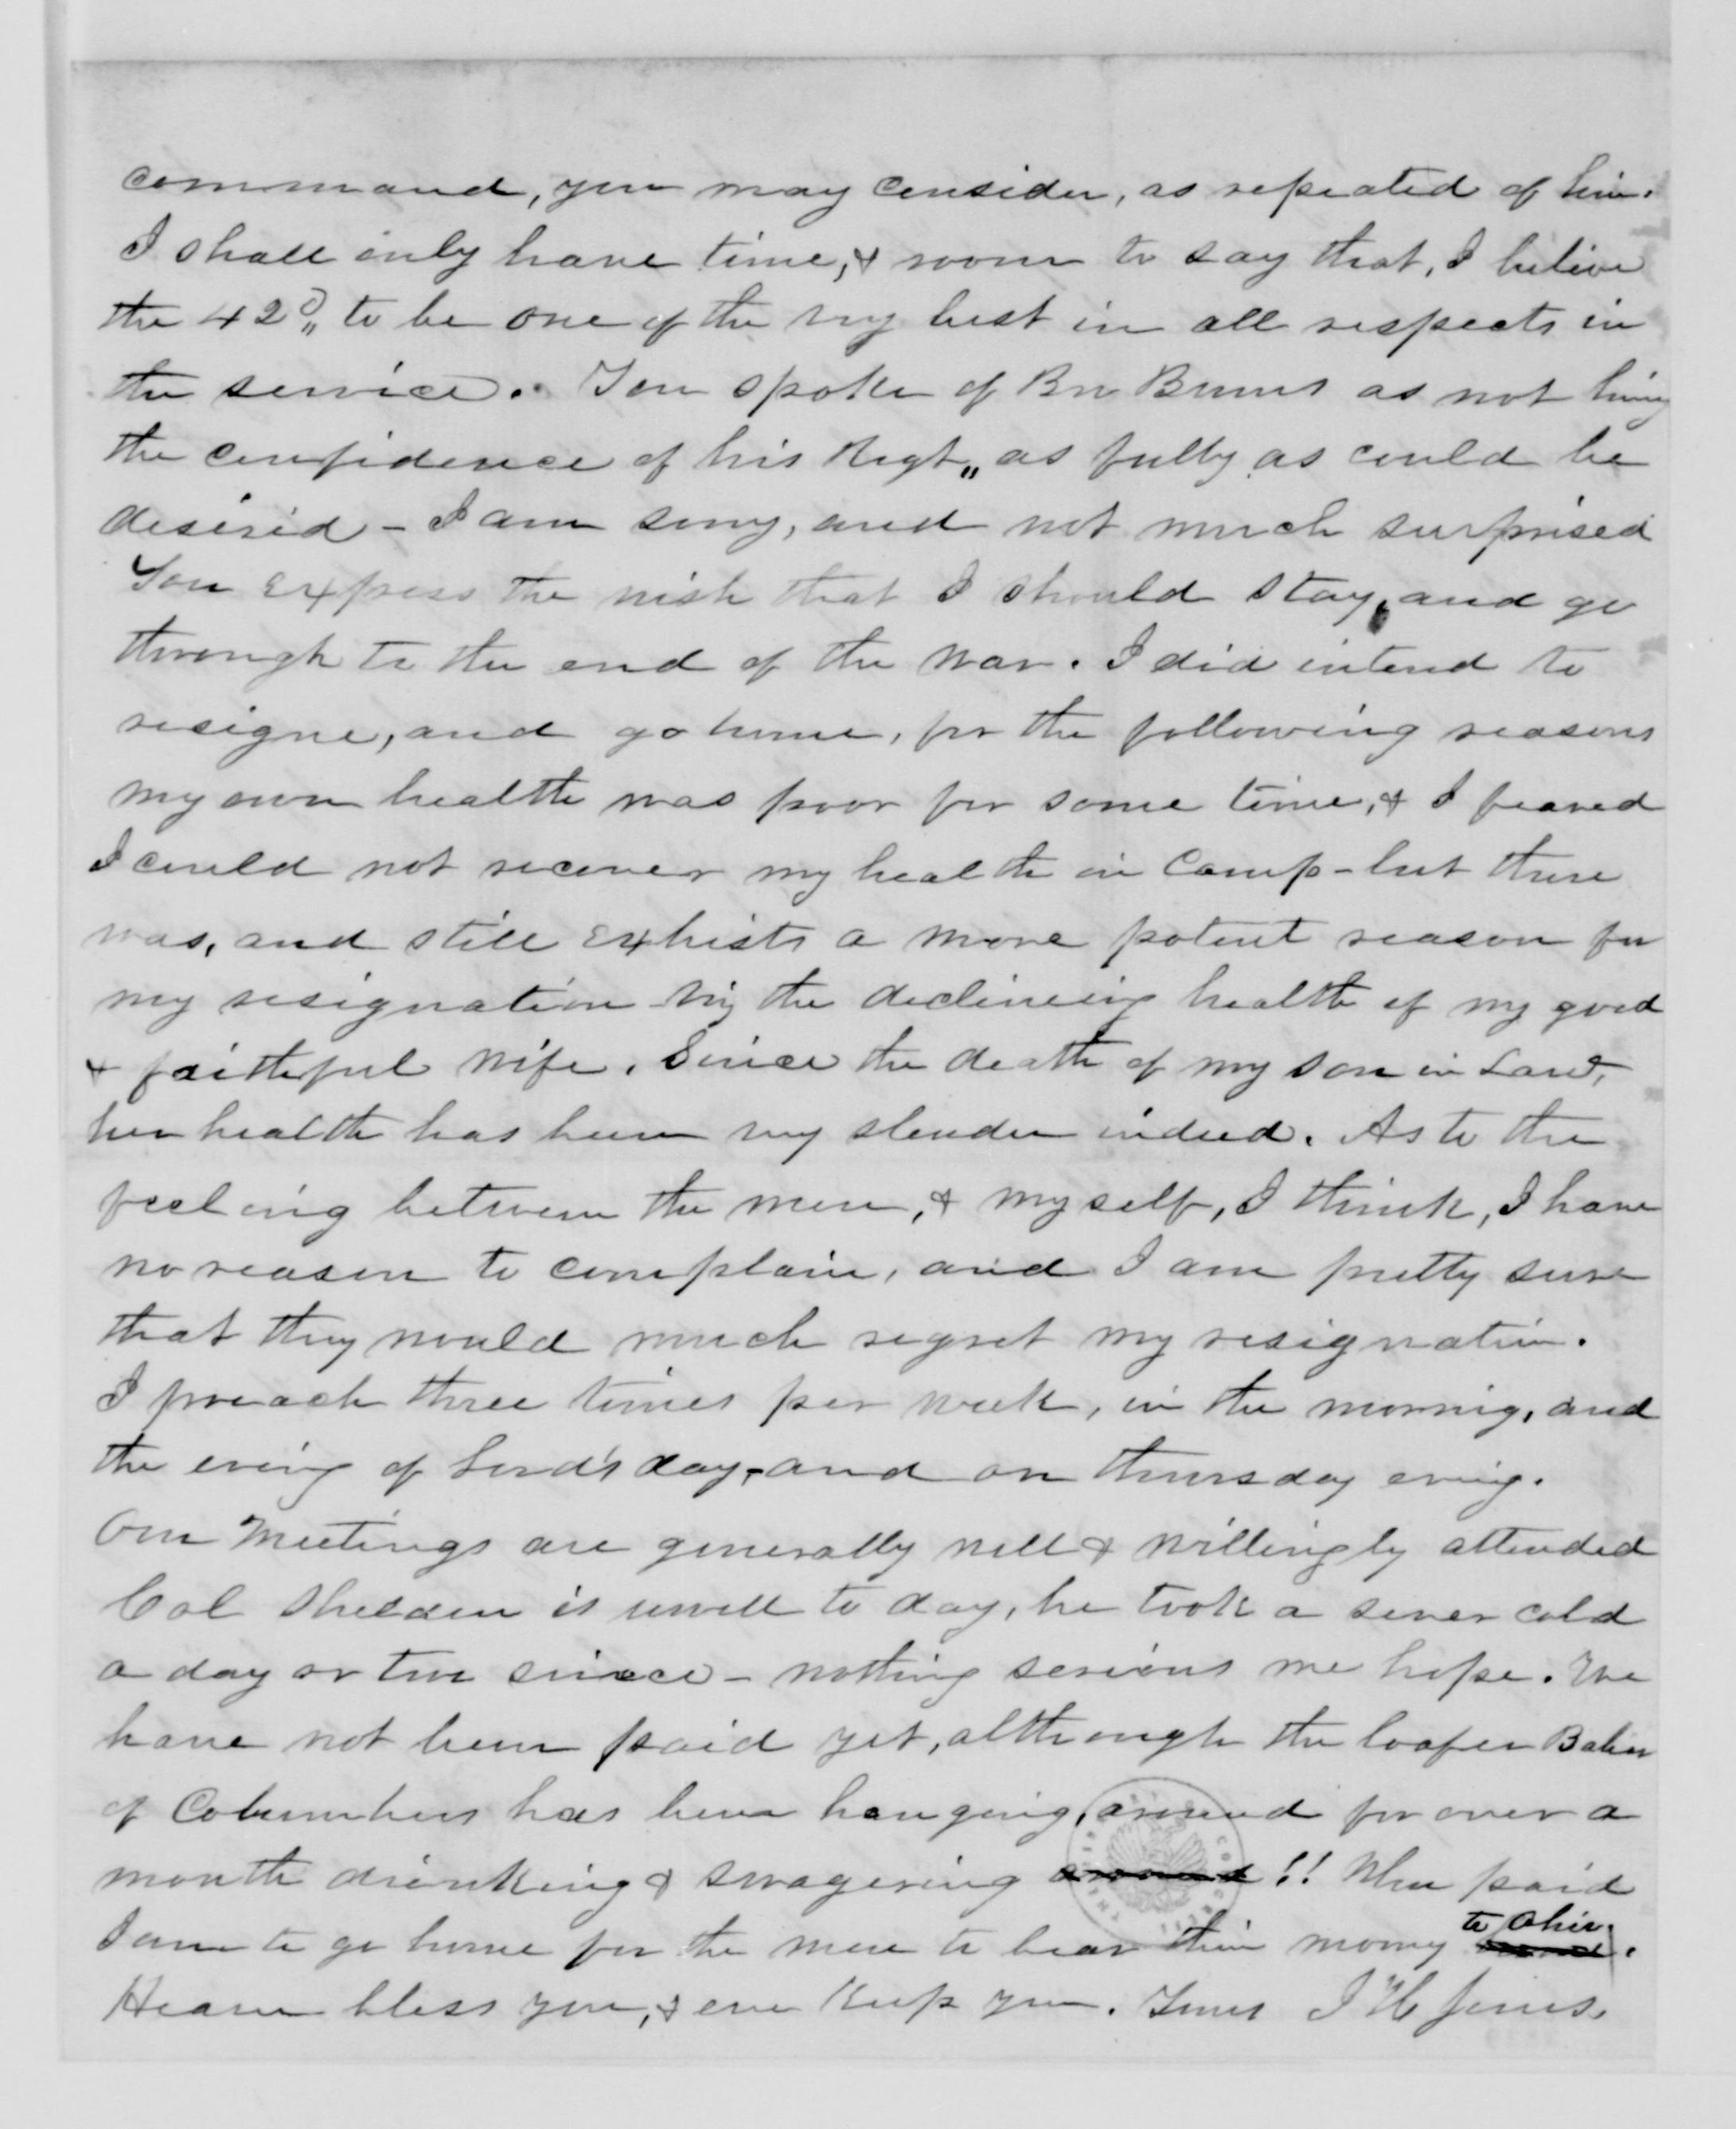 command, you may consider, as repeated of him.
I shall only have time, & room to say that, I belive
the 42D,, to be one of the very best in all respects in
the service. You spoke of Bro as not
the confidence of his Regt,, as fully as could be
desired - I am sorry, and not much surprised
You express the wish that I should stay, and go
through to the end of the war. I did intend to
resigne, and go home, for the following reasons
my own health was poor for some time, & I feared
I could not recover my health in Camp - but there
was, and still exhists a more potent reason for
my resignation viz the declineing health of my good
& faithful wife. Since the death of my son in Law,
her health has been very slender indeed. As to the
feeling between the men, & myself, I think, I have
no reason to complain, and I am pretty sure
that they would much regret my resignation.
I preach three times per week, in the mornig, and
the evenig of Lord's day, and on thursday evenig.
Our Meetings are generally well & willingly attended
Col Sheldon is unwell to day, he took a sever cold
a day or two since - nothing serious we hope. We
have not been paid yet, although the loafer Baker
of Columbus has been hanging, around for over a
month drinking & swagering around !! When paid
I am to go home for the men to bear their money to Ohio.
Heaven bless you, & ever keep you. Yours J H Jones.